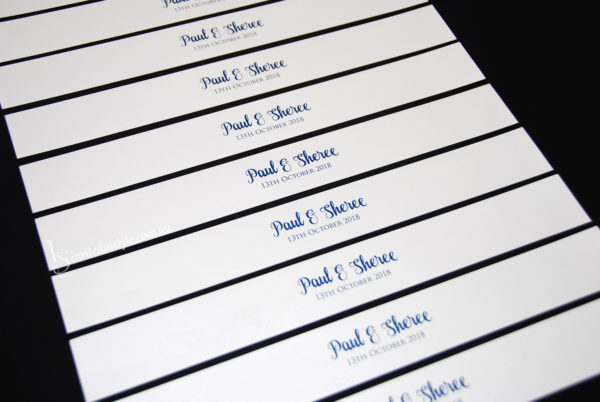 13TH OCTOBER 2018
Paul & Sheree
13TH OCTOBER 2018
Paul & Sheree
13TH OCTOBER 2018
Paul & Sheree
13TH OCTOBER 2018
Paul & Sheree
13TH OCTOBER 2018
Paul & Sheree
13TH OCTOBER 2018
Paul & Sheree
13TH OCTOBER 2018
Paul & Sheree
13TH OCTOBER 2018
Paul & Sheree